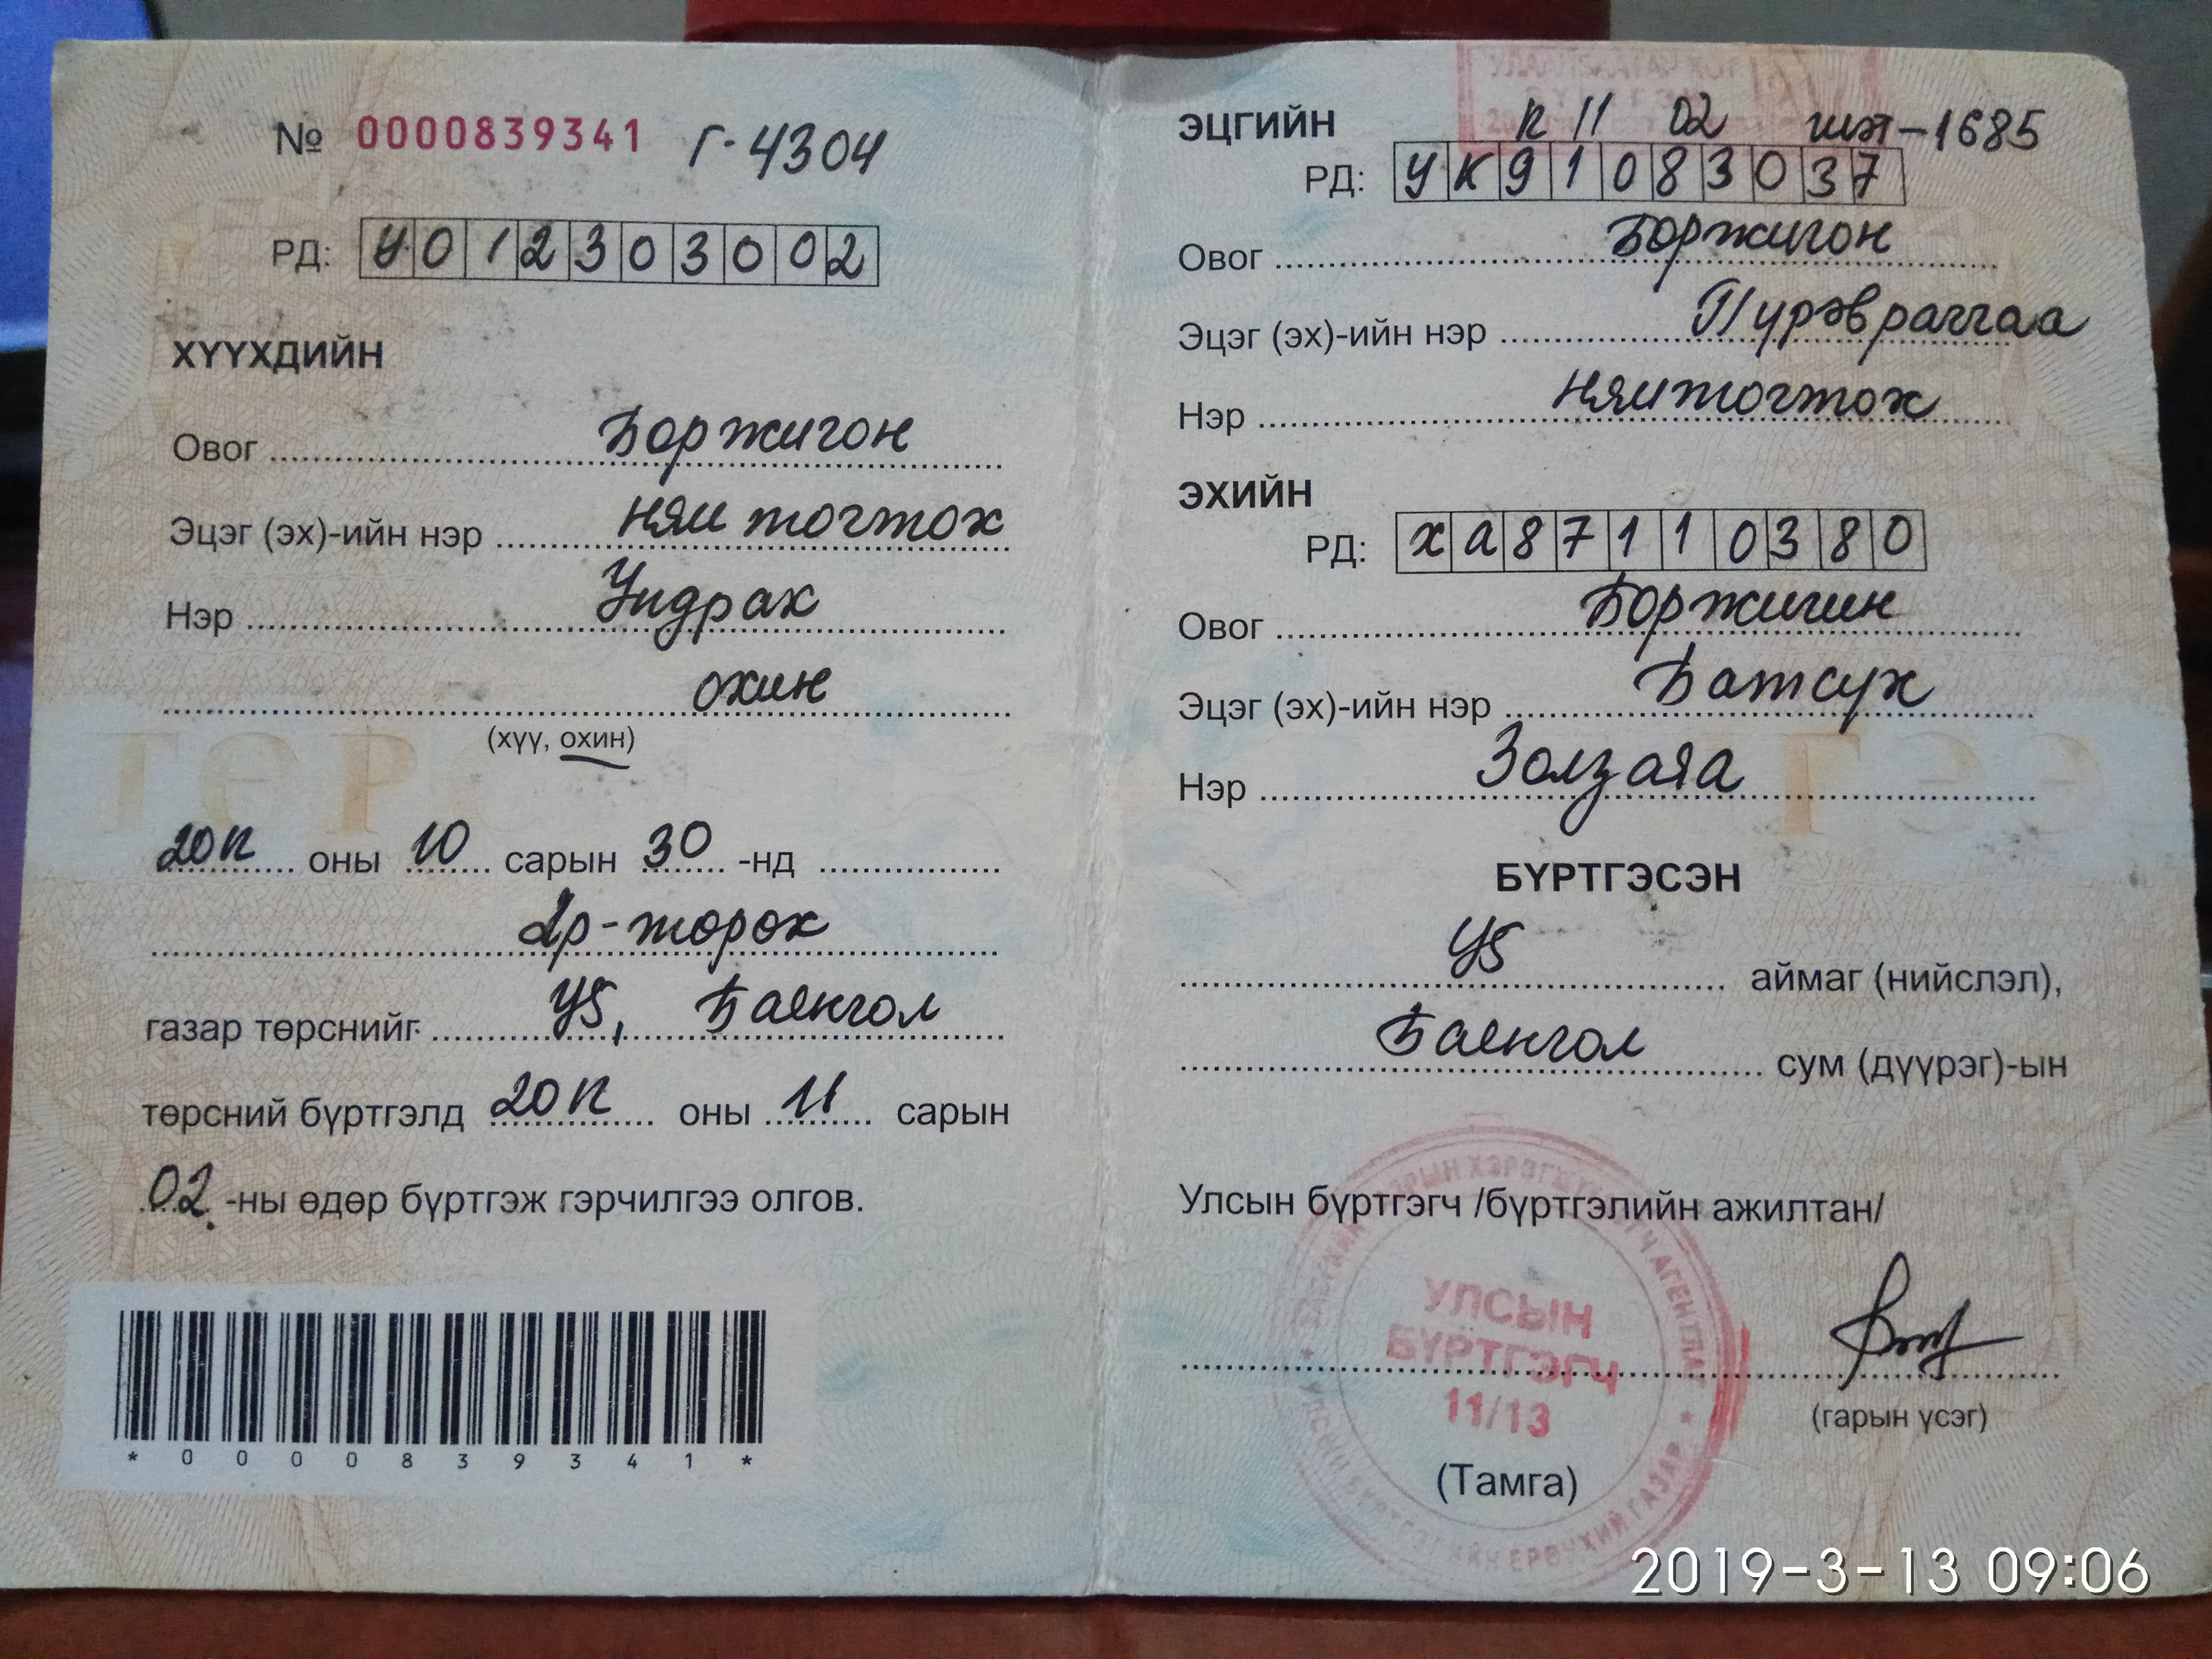 № 0000839341 Г-4304
РД: У012303002
ХҮҮХДИЙН
Овог Боржигон
Эцэг (эх)-ийн нэр Нямтогтох
Нэр Ундрах
охин
(хүү, охин)
2012 оны 10 сарын 30 -нд
2р-төрөх
газар төрснийг УБ, Баянгол
төрсний бүртгэлд 2012 оны 11 сарын
02 -ны өдөр бүртгэж гэрчилгээ олгов.
*0000839341*
12 11 02 шт-1685
ЭЦГИЙН
РД: УК91083037
Овог Боржигон
Эцэг (эх)-ийн нэр Пүрэвраггаа
Нэр Нямтогтох
ЭХИЙН
РД: ХА87110380
Овог Боржигин
Эцэг (эх)-ийн нэр Батсүх
Нэр Золзаяа
БҮРТГЭСЭН
УБ аймаг (нийслэл),
Баянгол сум (дүүрэг)-ын
Улсын бүртгэгч /бүртгэлийн ажилтан/
УЛСЫН
БҮРТГЭГЧ
11/13
(гарын үсэг)
(Тамга)
2019-3-13 09:06